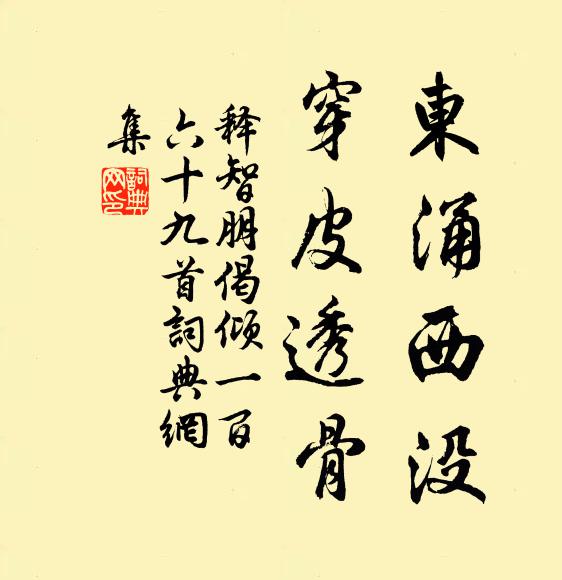 東涌西没
穿皮透骨
释智朋偈倾一百
六十九首詞典網
集
詞典
网印